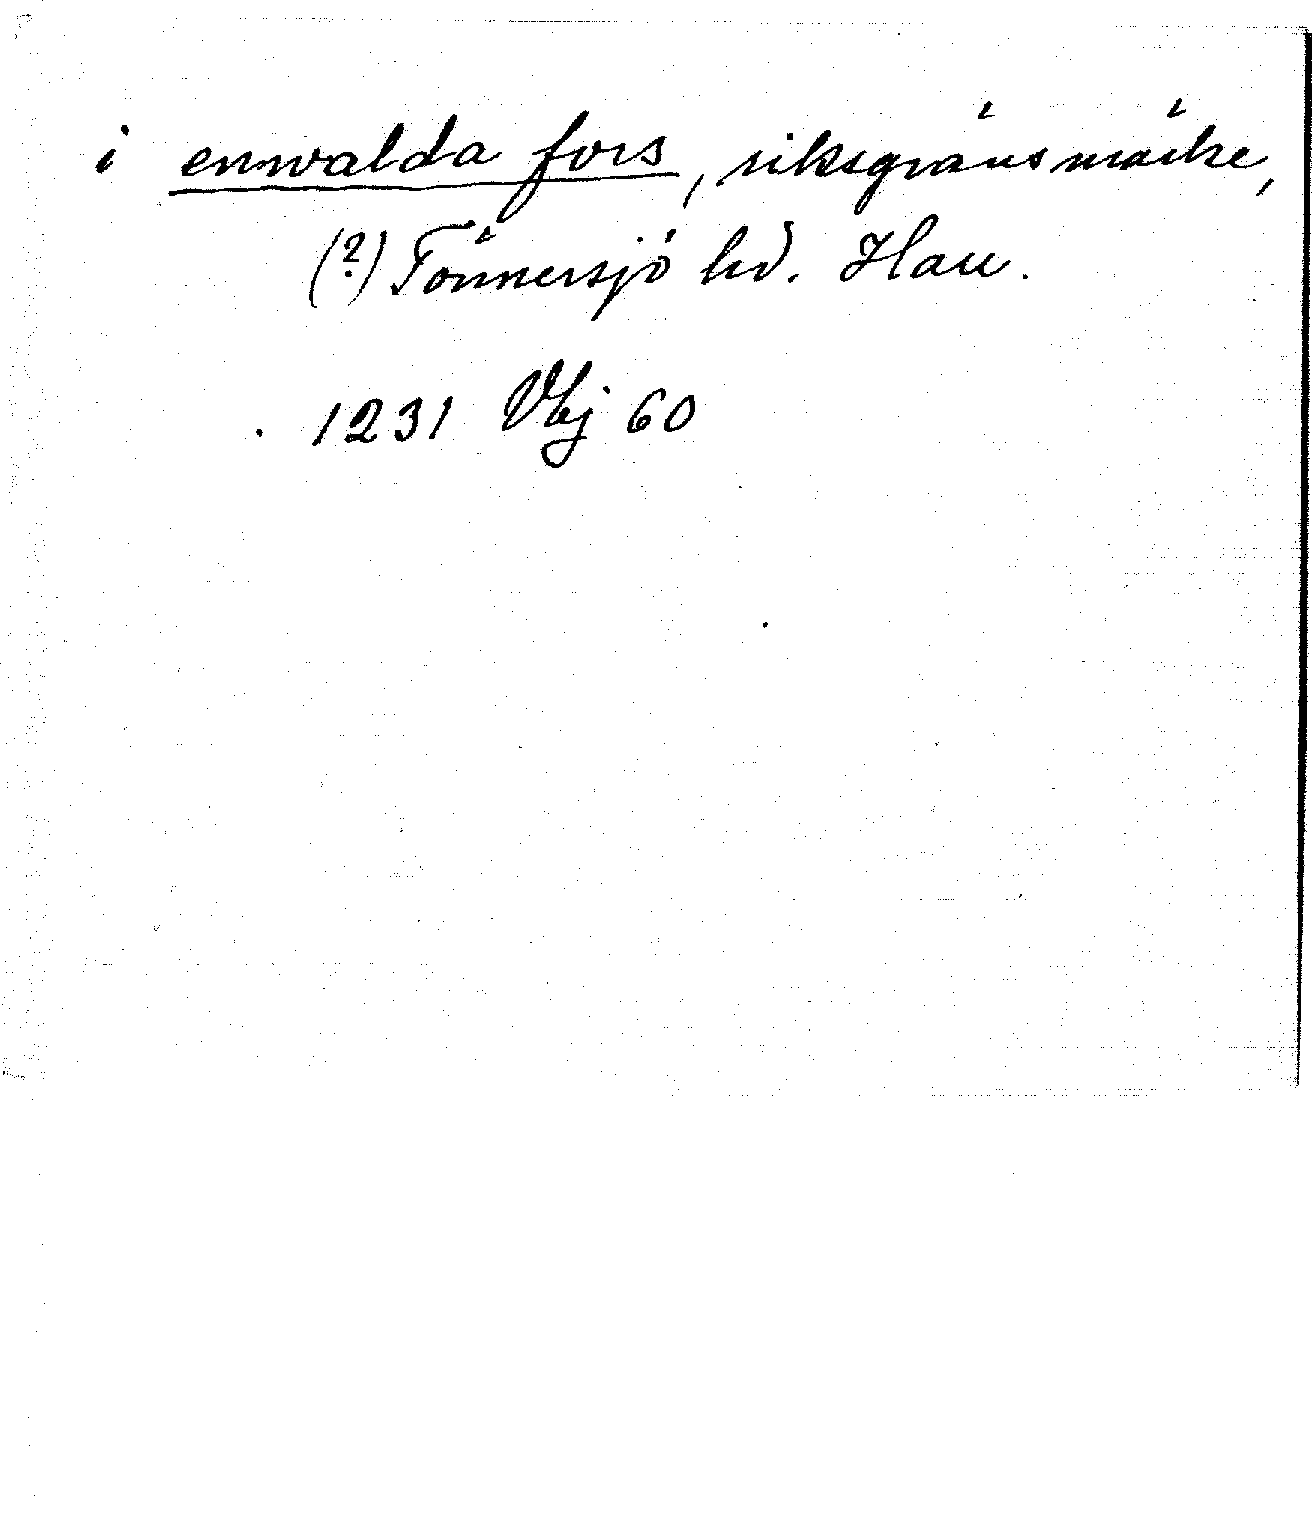 i enwalda fors, riksgränsmärke,
(?) Tönnersjö hd. Hall.
1231 Vbj 60